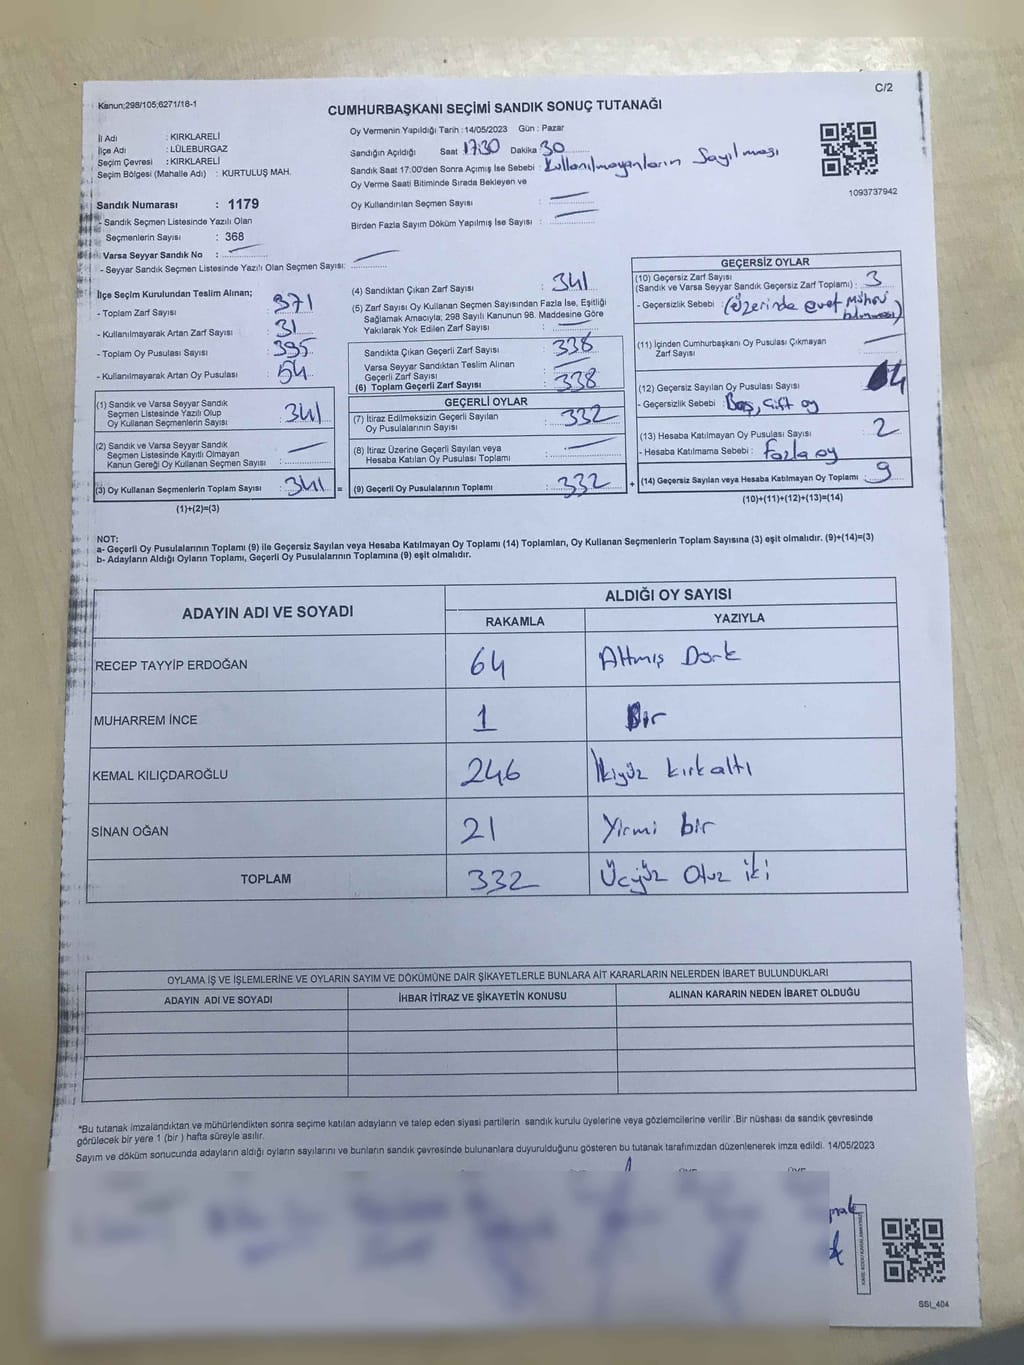 Kanun;298/105;6271/18-1
C/2
CUMHURBAŞKANI SEÇİMİ SANDIK SONUÇ TUTANAĞI
İl Adı : KIRKLARELİ
İlçe Adı : LÜLEBURGAZ
Seçim Çevresi : KIRKLARELİ
Seçim Bölgesi (Mahalle Adı) : KURTULUŞ MAH.
Oy Vermenin Yapıldığı Tarih :14/05/2023 Gün : Pazar
Sandığın Açıldığı Saat 17:30 Dakika 30
Sandık Saat 17:00'den Sonra Açımış İse Sebebi : Kullanılmayanların Sayılması
Oy Verme Saati Bitiminde Sırada Bekleyen ve
Oy Kullandırılan Seçmen Sayısı : —
Birden Fazla Sayım Döküm Yapılmış İse Sayısı : —
1093737942
Sandık Numarası : 1179
- Sandık Seçmen Listesinde Yazılı Olan
Seçmenlerin Sayısı : 368
Varsa Seyyar Sandık No : —
- Seyyar Sandık Seçmen Listesinde Yazılı Olan Seçmen Sayısı: —
İlçe Seçim Kurulundan Teslim Alınan;
- Toplam Zarf Sayısı : 371
- Kullanılmayarak Artan Zarf Sayısı : 31
- Toplam Oy Pusulası Sayısı : 395
- Kullanılmayarak Artan Oy Pusulası : 54
(1) Sandık ve Varsa Seyyar Sandık
Seçmen Listesinde Yazılı Olup
Oy Kullanan Seçmenlerin Sayısı : 341
(2) Sandık ve Varsa Seyyar Sandık
Seçmen Listesinde Kayıtlı Olmayan
Kanun Gereği Oy Kullanan Seçmen Sayısı : —
(3) Oy Kullanan Seçmenlerin Toplam Sayısı : 341 =
(1)+(2)=(3)
(4) Sandıktan Çıkan Zarf Sayısı : 341
(5) Zarf Sayısı Oy Kullanan Seçmen Sayısından Fazla İse, Eşitliği
Sağlamak Amacıyla; 298 Sayılı Kanunun 98. Maddesine Göre
Yakılarak Yok Edilen Zarf Sayısı : —
Sandıkta Çıkan Geçerli Zarf Sayısı : 338
Varsa Seyyar Sandıktan Teslim Alınan
Geçerli Zarf Sayısı : —
(6) Toplam Geçerli Zarf Sayısı : 338
GEÇERLİ OYLAR
(7) İtiraz Edilmeksizin Geçerli Sayılan
Oy Pusulalarının Sayısı : 332
(8) İtiraz Üzerine Geçerli Sayılan veya
Hesaba Katılan Oy Pusulası Toplamı : —
(9) Geçerli Oy Pusulalarının Toplamı : 332 +
GEÇERSİZ OYLAR
(10) Geçersiz Zarf Sayısı
(Sandık ve Varsa Seyyar Sandık Geçersiz Zarf Toplamı) : 3
- Geçersizlik Sebebi : (Üzerinde evet mührü
bulunması)
(11) İçinden Cumhurbaşkanı Oy Pusulası Çıkmayan
Zarf Sayısı : —
(12) Geçersiz Sayılan Oy Pusulası Sayısı : 4
- Geçersizlik Sebebi : Boş, Çift oy
(13) Hesaba Katılmayan Oy Pusulası Sayısı : 2
- Hesaba Katılmama Sebebi : Fazla oy
(14) Geçersiz Sayılan veya Hesaba Katılmayan Oy Toplamı : 9
(10)+(11)+(12)+(13)=(14)
NOT:
a- Geçerli Oy Pusulalarının Toplamı (9) ile Geçersiz Sayılan veya Hesaba Katılmayan Oy Toplamı (14) Toplamları, Oy Kullanan Seçmenlerin Toplam Sayısına (3) eşit olmalıdır. (9)+(14)=(3)
b- Adayların Aldığı Oyların Toplamı, Geçerli Oy Pusulalarının Toplamına (9) eşit olmalıdır.
ADAYIN ADI VE SOYADI
ALDIĞI OY SAYISI
RAKAMLA YAZIYLA
RECEP TAYYİP ERDOĞAN 64 Altmış Dört
MUHARREM İNCE 1 Bir
KEMAL KILIÇDAROĞLU 246 İkiyüz kırkaltı
SİNAN OĞAN 21 Yirmi bir
TOPLAM 332 Üçyüz Otuz iki
OYLAMA İŞ VE İŞLEMLERİNE VE OYLARIN SAYIM VE DÖKÜMÜNE DAİR ŞİKAYETLERLE BUNLARA AİT KARARLARIN NELERDEN İBARET BULUNDUKLARI
ADAYIN ADI VE SOYADI İHBAR İTİRAZ VE ŞİKAYETİN KONUSU ALINAN KARARIN NEDEN İBARET OLDUĞU
*Bu tutanak imzalandıktan ve mühürlendikten sonra seçime katılan adayların ve talep eden siyasi partilerin sandık kurulu üyelerine veya gözlemcilerine verilir .Bir nüshası da sandık çevresinde
görülecek bir yere 1 (bir ) hafta süreyle asılır.
Sayım ve döküm sonucunda adayların aldığı oyların sayılarını ve bunların sandık çevresinde bulunanlara duyurulduğunu gösteren bu tutanak tarafımızdan düzenlenerek imza edildi. 14/05/2023
SSI_404